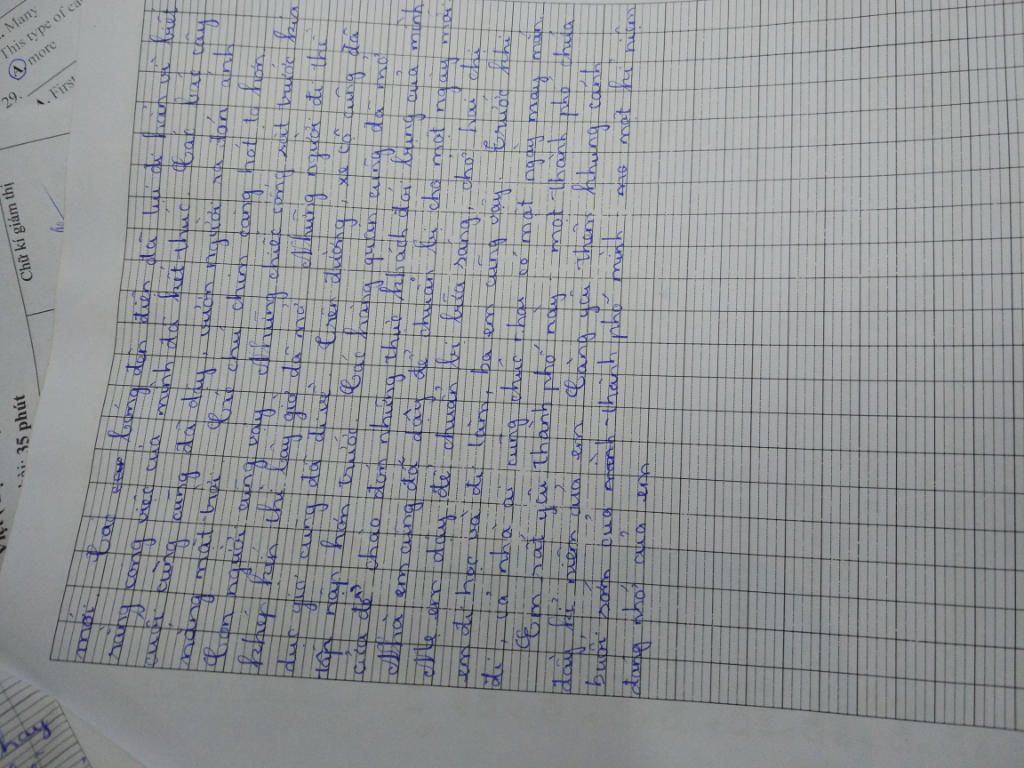 mới. Các bóng đèn điện đã tắt đi hiện vì biết
rằng công việc của mình đã kết thúc. Các loài cây
cuối cùng cũng đã dậy, vươn người ra đón ánh
nắng mặt trời. Các chú chim càng hát to hơn.
Con người cũng vậy. Những chiếc công sắt trước kia
khép kín thì bây giờ đã mở. Những người đi thể
dục giờ cũng đã đi về. Trên đường, xe cộ cũng đã
tấp nập hơn trước. Các hàng quán cũng đã mở
cửa để chào đón những thực khách đói bụng của mình.
Nhà em cũng đã dậy để chuẩn bị cho một ngày mới.
Mẹ em dậy để chuẩn bị bữa sáng, cho hai chị
em đi học và đi làm, ba em cũng vậy. Trước khi
đi, cả nhà ai cũng chúc nhau có một ngày may mắn.
Em rất yêu thành phố này, một thành phố chứa
đầy kỉ niệm của em. Càng yêu thêm khung cảnh
buổi sớm của thành phố mình một kỉ niệm
đáng nhớ của em
Chữ kí giám thị
35 phút
Many
This type of ca
more
29.
First
hay